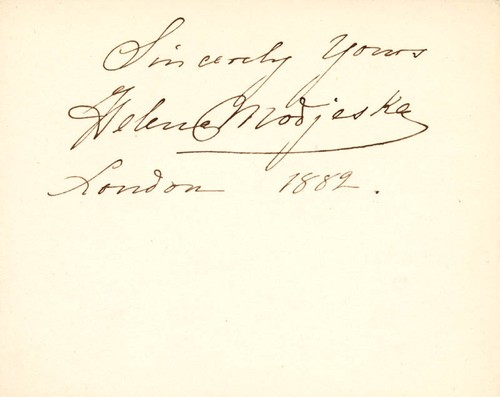 Sincerely Yours
Helena Modjeska
London 1882.